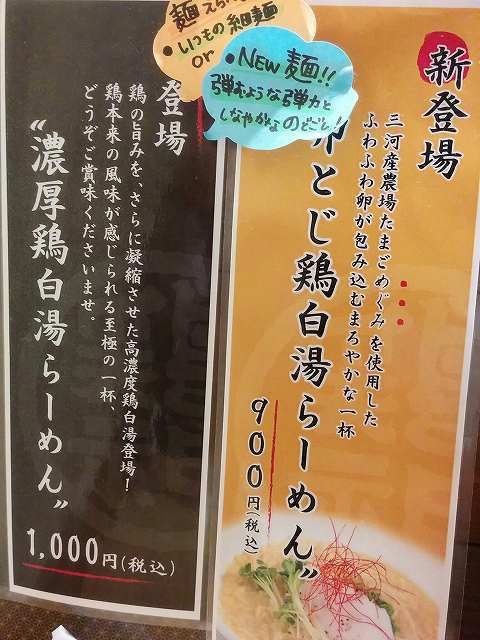 新登場
三河産農場たまごめぐみを使用した
ふわふわ卵が包み込むまろやかな一杯
卵とじ鶏白湯らーめん〟
900円(税込)
麺えら
●いつもの細麺
or
●NEW麺!!
弾むような弾力と
しなやかなのどごし!
登場
鶏の旨みを、さらに凝縮させた高濃度鶏白湯登場!
鶏本来の風味が感じられる至極の一杯、
どうぞご賞味くださいませ。
〝濃厚鶏白湯らーめん〟
1,000円(税込)